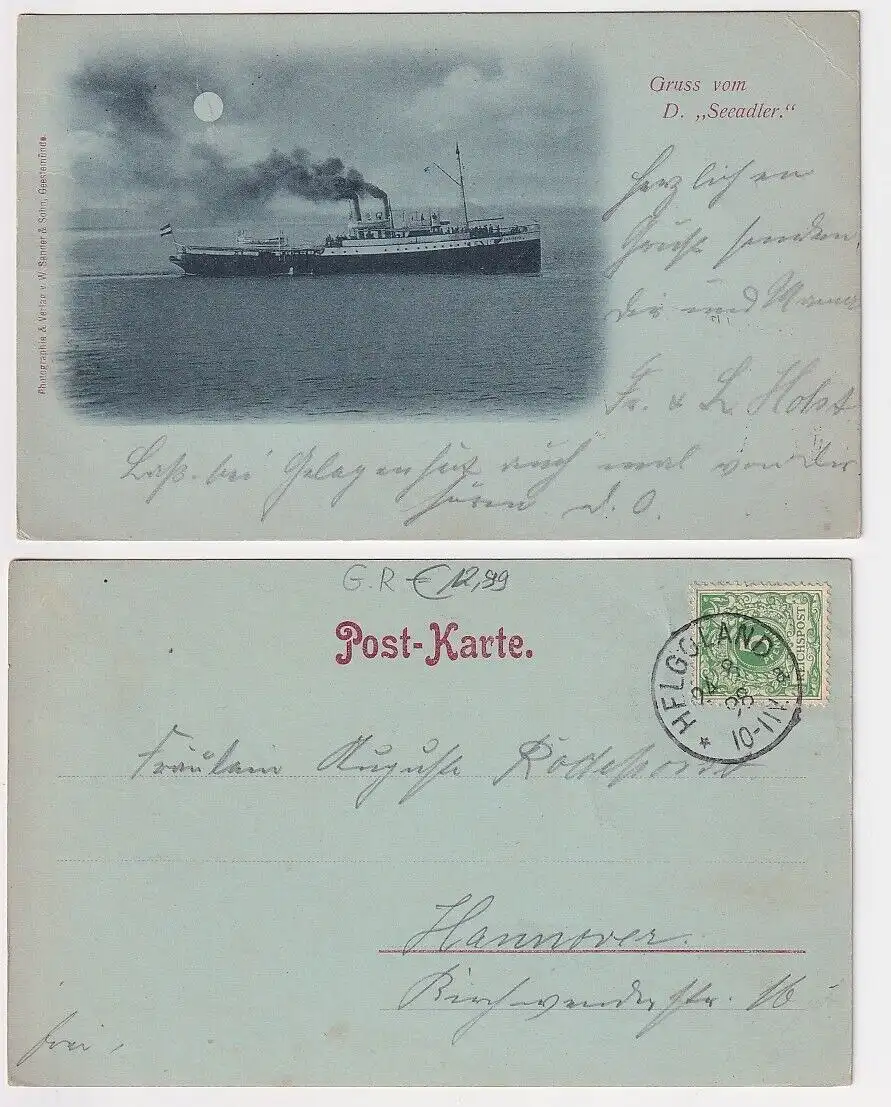 Gruss vom
D. „Seeadler.“
Photographie & Verlag v. W. Sander & Sohn, Geestemünde.
Herzlichen
Gruß senden
Dir und Mama
Fr. & L. Holst
Laß bei Gelegenheit auch mal von Dir
hören. d. O.
G.R € 12,99
Post-Karte.
REICHSPOST
HELGOLAND
24 8 98
10-11V
*
Fräulein Auguste
Hannover.
Kirchwenderstr. 16
frei